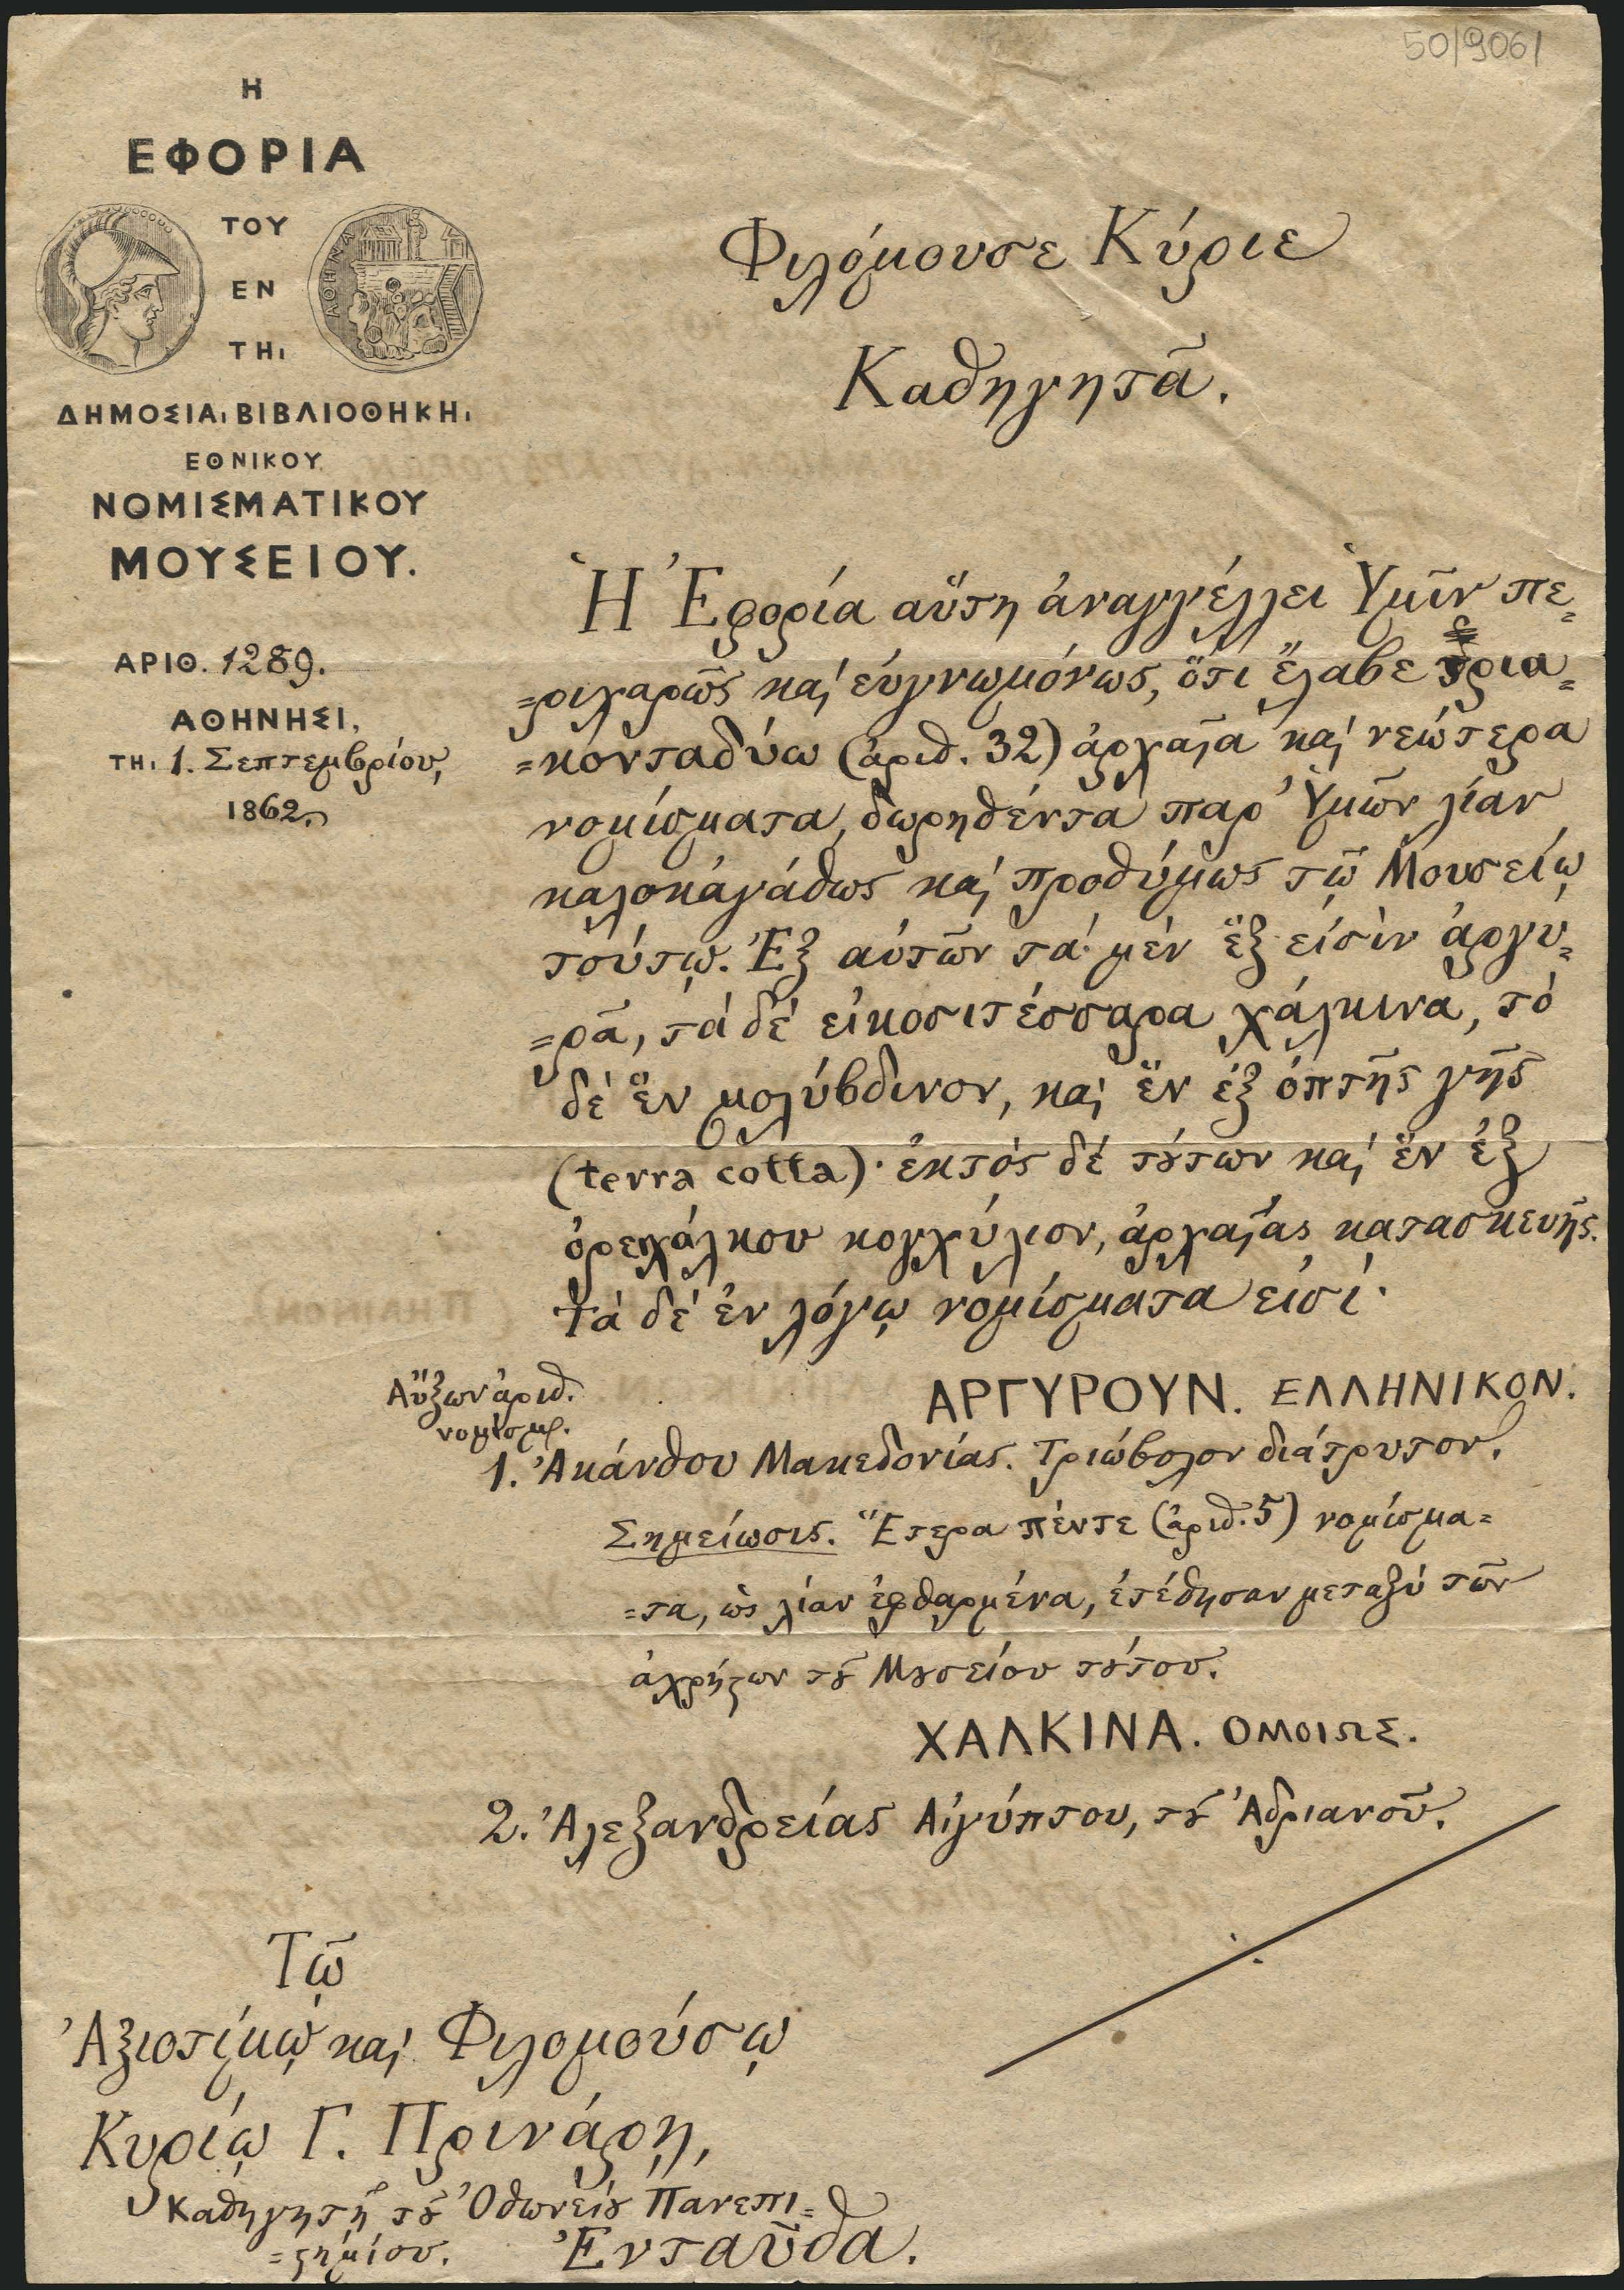 50/9061
Η
ΕΦΟΡΙΑ
ΤΟΥ
ΕΝ
ΤΗΙ
ΑΘΗΝΑ
ΔΗΜΟΣΙΑΙ ΒΙΒΛΙΟΘΗΚΗΙ
ΕΘΝΙΚΟΥ
ΝΟΜΙΣΜΑΤΙΚΟΥ
ΜΟΥΣΕΙΟΥ.
ΑΡΙΘ. 1289.
ΑΘΗΝΗΣΙ,
ΤΗΙ 1. Σεπτεμβρίου,
1862.
Φιλόμουσε Κύριε
Καθηγητᾶ.
Ἡ Ἐφορία αὕτη ἀναγγέλλει Ὑμῖν πε=
=ριχαρῶς καὶ εὐγνωμόνως, ὅτι ἔλαβε τρια=
=κονταδύω (ἀριθ. 32) ἀρχαῖα καὶ νεώτερα
νομίσματα, δωρηθέντα παρ' Ὑμῶν λίαν
καλοκἀγάθως καὶ προθύμως τῷ Μουσείῳ
τούτῳ. Ἐξ αὐτῶν τὰ μὲν ἓξ εἰσὶν ἀργυ=
=ρᾶ, τὰ δὲ εἰκοσιτέσσαρα χάλκινα, τὸ
δὲ ἓν μολύβδινον, καὶ ἓν ἐξ ὀπτῆς γῆς
(terra cotta)· ἐκτὸς δὲ τȣ́των καὶ ἓν ἐξ
ὀρειχάλκου κογχύλιον, ἀρχαίας κατασκευῆς.
τὰ δὲ ἐν λόγῳ νομίσματα εἰσί·
Αὔξων ἀριθ.
νομίσμ.
ΑΡΓΥΡΟΥΝ. ΕΛΛΗΝΙΚΟΝ.
1. Ἀκάνθου Μακεδονίας. Τριώβολον διάτρυτον.
Σημείωσις. Ἕτερα πέντε (ἀριθ. 5) νομίσμα=
=τα, ὡς λίαν ἐφθαρμένα, ἐτέθησαν μεταξὺ τῶν
ἀχρήϛων τȣ͂ Μȣσείου τȣ́του.
ΧΑΛΚΙΝΑ. ΟΜΟΙΩΣ.
2. Ἀλεξανδρείας Αἰγύπτου, τȣ͂ Ἀδριανοῦ.
Τῷ
Ἀξιοτίμῳ καὶ Φιλομούσῳ
Κυρίῳ Γ. Πρινάρῃ,
Καθηγητῇ τȣ͂ Ὀθωνείȣ Πανεπι=
=ϛημίου. Ἐνταῦθα.